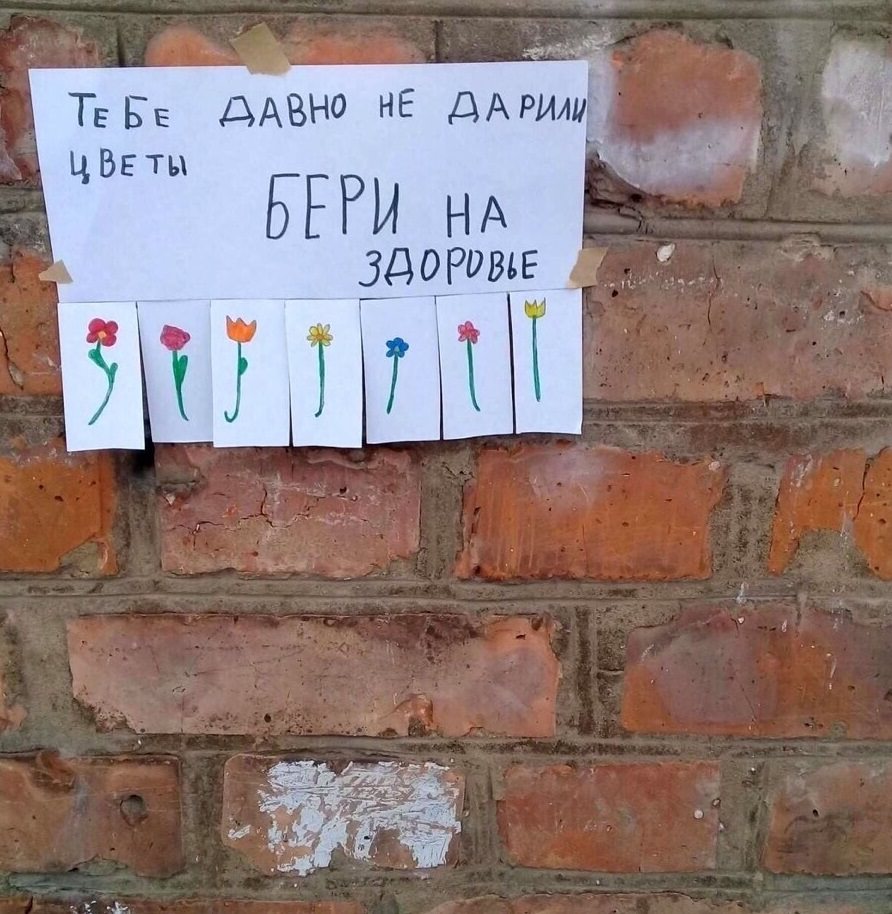 ТЕБЕ ДАВНО НЕ ДАРИЛИ
ЦВЕТЫ
БЕРИ НА
ЗДОРОВЬЕ